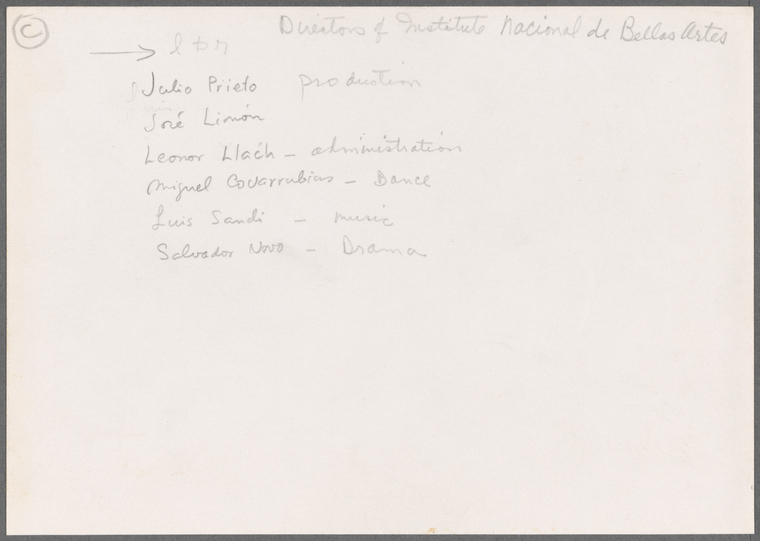 C
Directors of Instituto Nacional de Bellas Artes
→ l to r
Julio Prieto production
José Limón
Leonor Llach - administration
Miguel Covarrubias - Dance
Luis Sandi - music
Salvador Novo - Drama